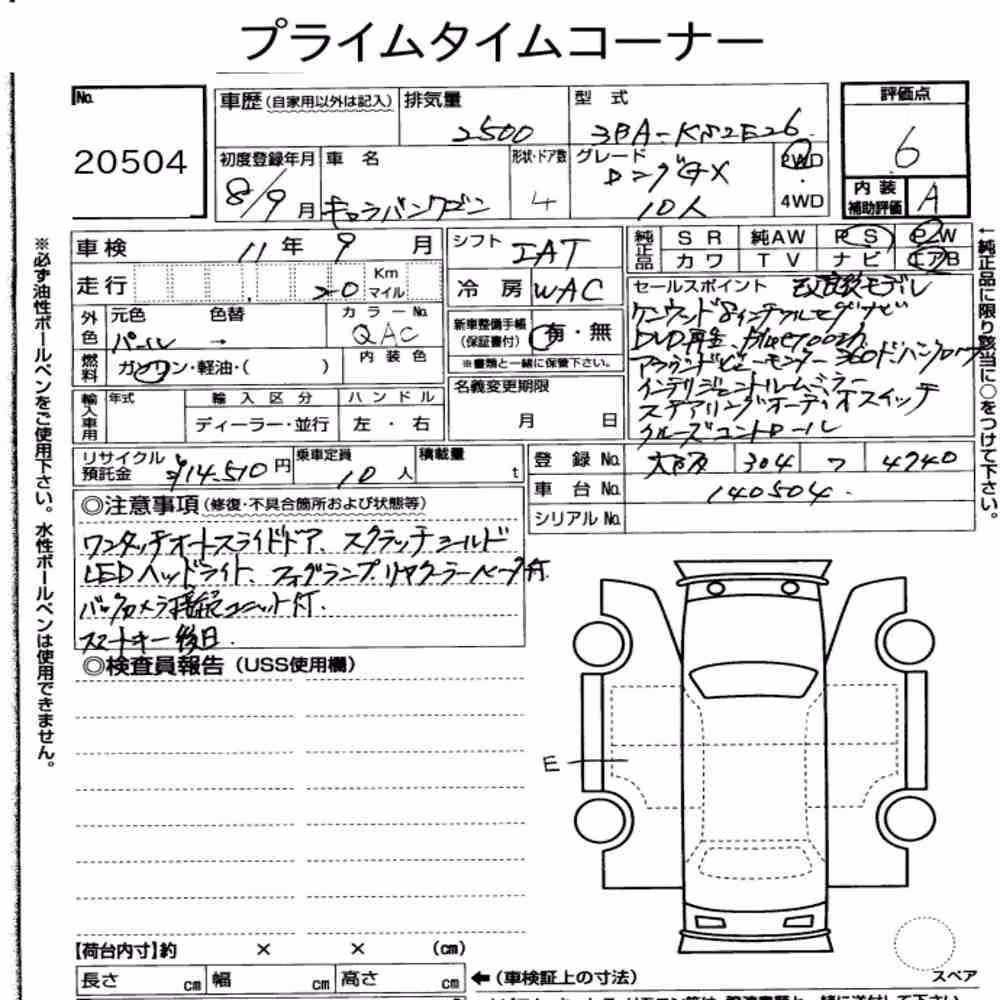 プライムタイムコーナー
No. 20504
車歴(自家用以外は記入)
排気量 2500
型式 3BA-KS2E26
評価点 6
内装補助評価 A
初度登録年月 8/9月
車名 キャラバンワゴン
形状・ドア数 4
グレード ロングGX 10人
2WD ・ 4WD
車検 11年9月
シフト IAT
純正品 SR 純AW PS PW
カワ TV ナビ エアB
走行 20 Km マイル
冷房 WAC
外色 元色 パール 色替 →
カラーNo. QAC
内装色
燃料 ガソリン・軽油・( )
新車整備手帳(保証書付) 有・無
※書類と一緒に保管下さい。
名義変更期限 月 日
輸入車用 年式 輸入区分 ディーラー・並行 ハンドル 左・右
セールスポイント 改良後モデル
ケンウッド8インチフルセグナビ
DVD再生、Bluetooth
アラウンドビューモニター 360ドバンクロツ
インテリジェントルームミラー
ステアリングオーディオスイッチ
クルーズコントロール
リサイクル預託金 ¥14,510円
乗車定員 10人
積載量 t
登録No. 大阪 304 4740
車台No. 140504
シリアルNo.
◎注意事項(修復・不具合箇所および状態等)
ワンタッチオートスライドドア、スクラッチシールド
LEDヘッドライト、フォグランプ、リヤクーラーヒーター付
バックカメラ接続ユニット付
スマートキー後日.
◎検査員報告(USS使用欄)
E
【荷台内寸】約 × × (cm)
長さ cm 幅 cm 高さ cm
←(車検証上の寸法)
スペア
※必ず油性ボールペンをご使用下さい。水性ボールペンは使用できません。
←純正品に限り該当に○をつけて下さい。